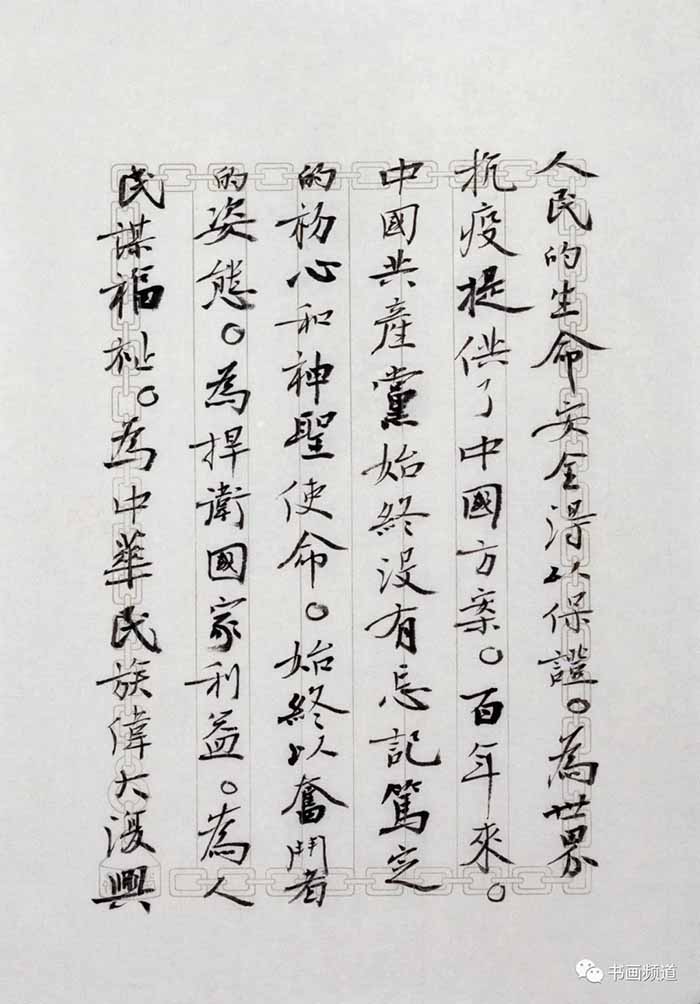 人民的生命安全得以保證。為世界
抗疫提供了中國方案。百年來。
中國共產黨始終沒有忘記篤定
的初心和神聖使命。始終以奮鬥者
的姿態。為捍衛國家利益。為人
民謀福祉。為中華民族偉大復興
书画频道